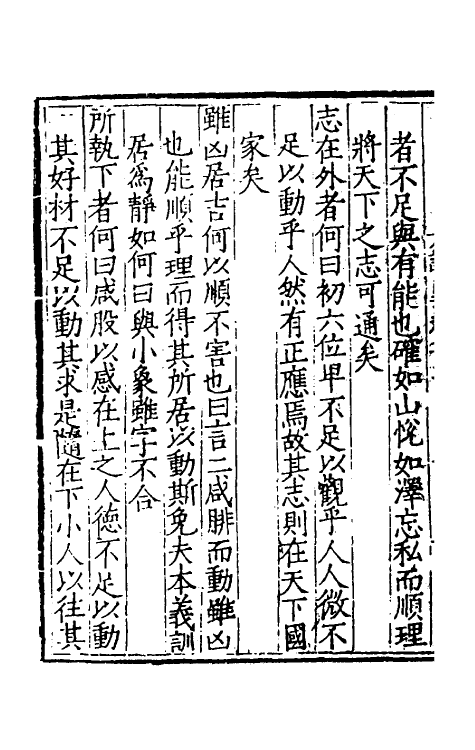 者不足與有能也確如山悅如澤忘私而順理
將天下之志可通矣
志在外者何曰初六位卑不足以觀乎人人微不
足以動乎人然有正應焉故其志則在天下國
家矣
雖凶居吉何以順不害也曰言二咸腓而動雖凶
也能順乎理而得其所居以動斯免夫本義訓
居為靜如何曰與小象雖字不合
所執下者何曰咸股以感在上之人德不足以動
其好材不足以動其求是隨在下小人以往其